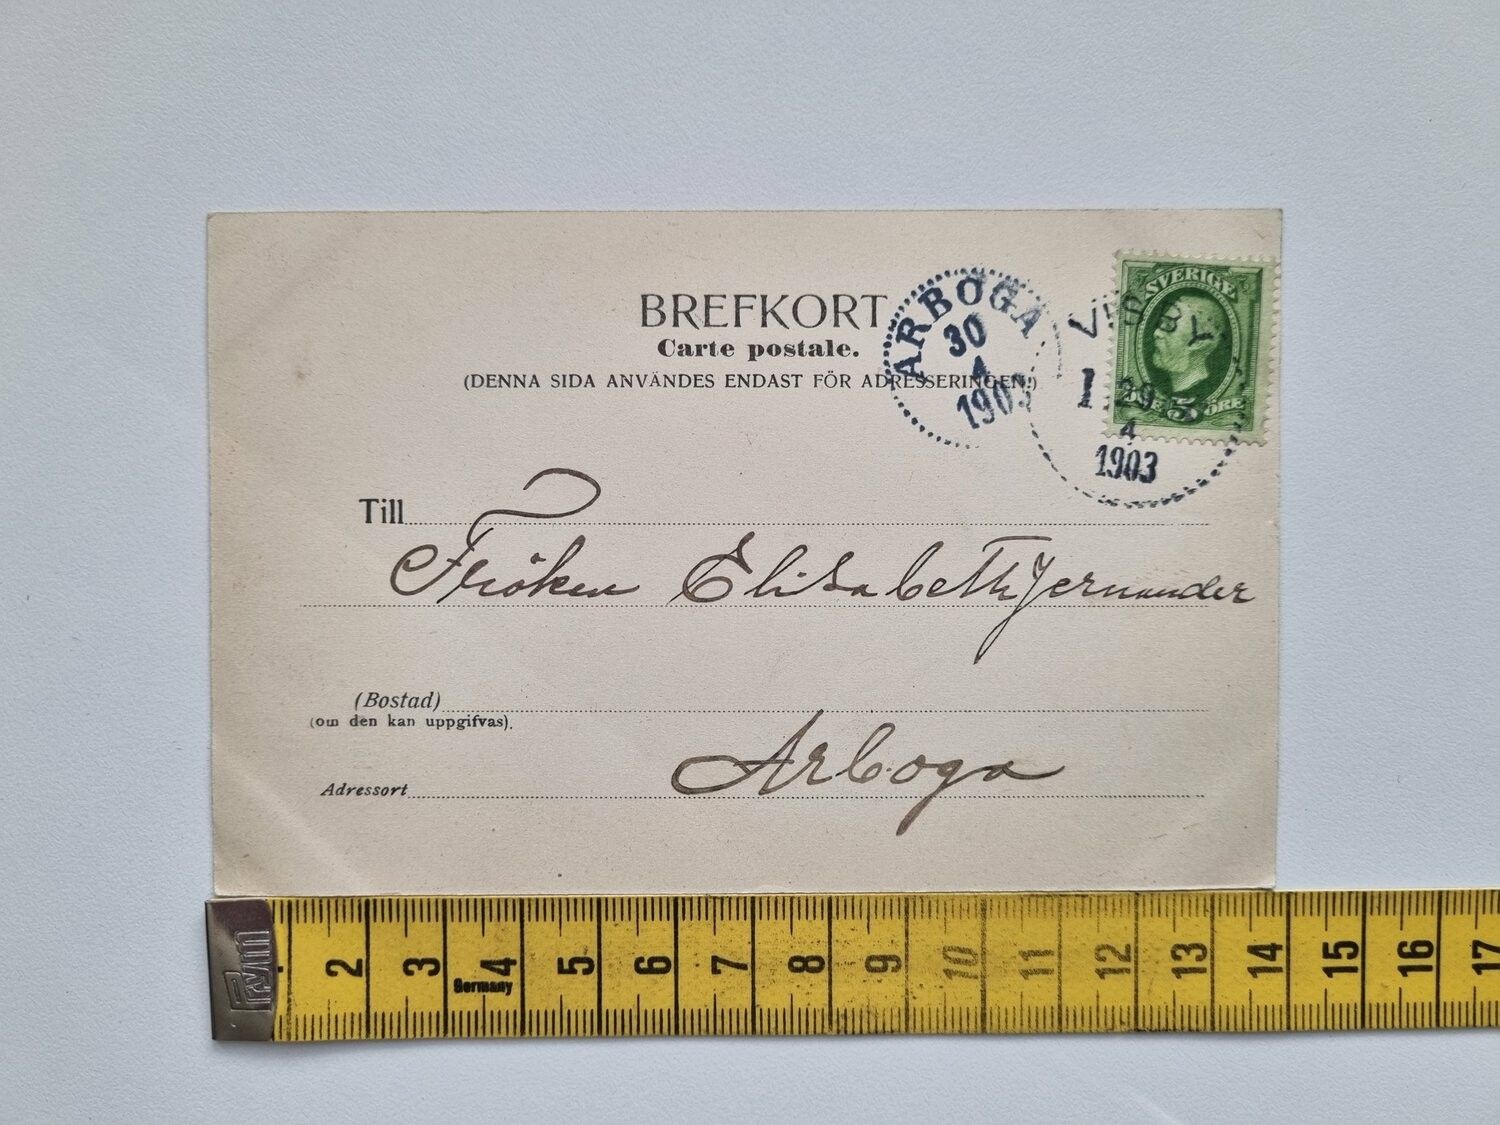 BREFKORT
Carte postale.
(DENNA SIDA ANVÄNDES ENDAST FÖR ADRESSERINGEN.)
ARBOGA
30
4
1903
SVERIGE
5 ÖRE
1 29
4
1903
Till
Fröken Elisabeth Jernander
(Bostad)
(om den kan uppgifvas).
Arboga
Adressort
Prym
2 3 4 5 6 7 8 9 10 11 12 13 14 15 16 17
Germany